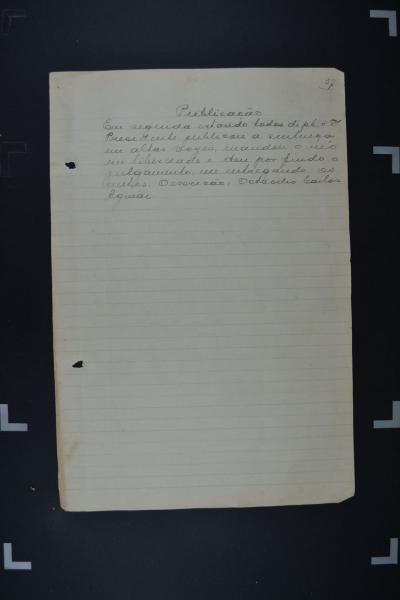 Publicação
Em seguida estando todos de pé, o
Presidente publicou a sentença
em altas vozes, mandou o réo
em liberdade e deu por findo o
julgamento, me entregando os
autos. O escrivão, Octacilio Carlos